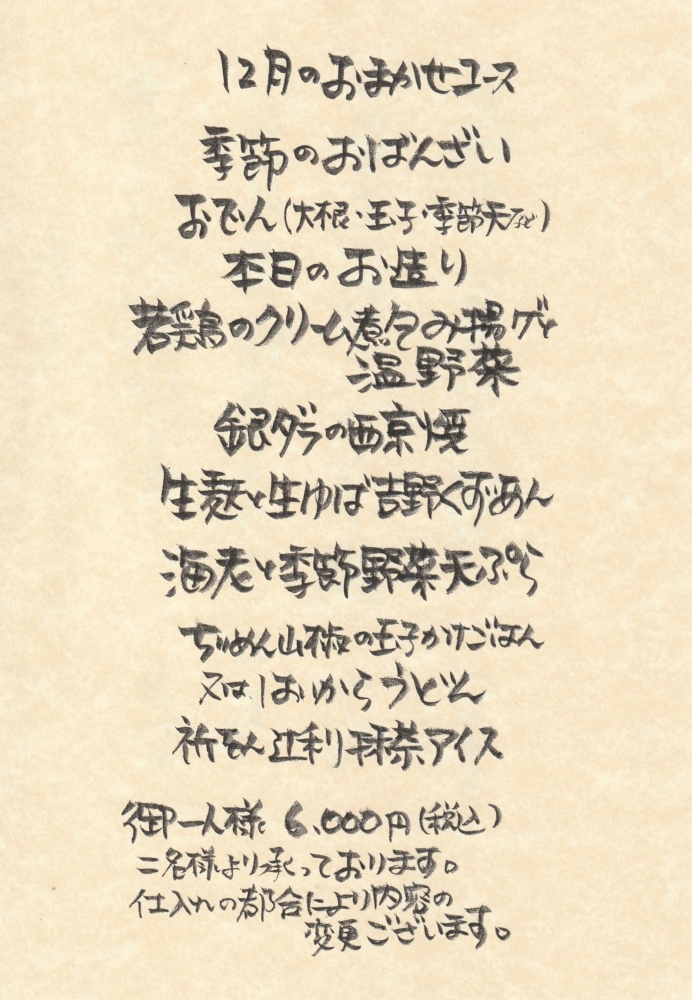 12月のおまかせコース
季節のおばんざい
おでん(大根・玉子・季節天など)
本日のお造り
若鶏のクリーム煮包み揚げと
温野菜
銀ダラの西京焼
生麩と生ゆば吉野くずあん
海老と季節野菜天ぷら
ちりめん山椒の玉子かけごはん
又ははいからうどん
祇をん辻利抹茶アイス
御一人様 6,000円(税込)
二名様より承っております。
仕入れの都合により内容の
変更ございます。